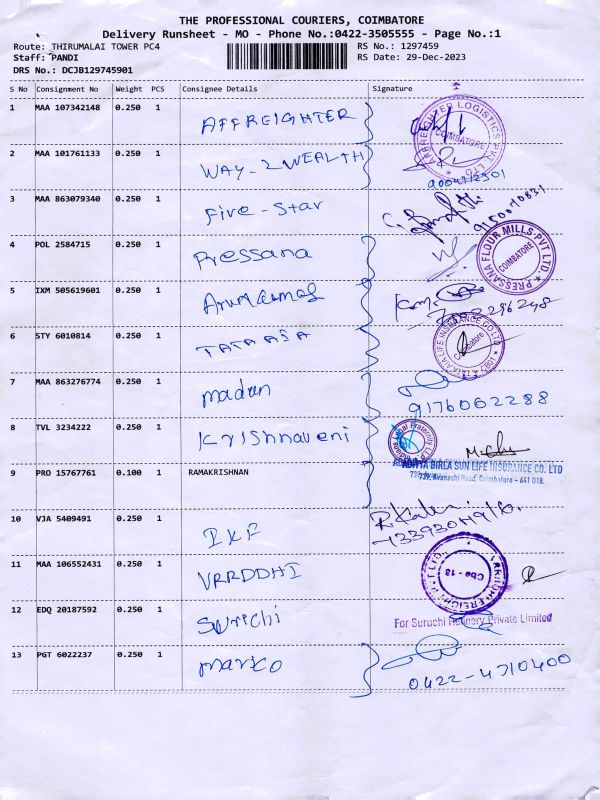 THE PROFESSIONAL COURIERS, COIMBATORE
Delivery Runsheet - MO - Phone No.:0422-3505555 - Page No.:1
Route: THIRUMALAI TOWER PC4 RS No.: 1297459
Staff: PANDI RS Date: 29-Dec-2023
DRS No.: DCJB129745901
S No Consignment No Weight PCS Consignee Details Signature
1 MAA 107342148 0.250 1 AFFREIGHTER
COIMBATORE
2 MAA 101761133 0.250 1 WAY-2WEALTH
3 MAA 863079340 0.250 1 Five-Star
4 POL 2584715 0.250 1 Pressana
PRESSANA FLOUR MILLS PVT LTD
COIMBATORE
5 IXM 505619601 0.250 1
6 STY 6010814 0.250 1 TATA AIA
TATA AIA LIFE INSURANCE CO LTD
Coimbatore
7 MAA 863276774 0.250 1 madan
9176062288
8 TVL 3234222 0.250 1 Krishnaveni
ADITYA BIRLA SUN LIFE INSURANCE CO. LTD
739, Avanashi Road, Coimbatore - 641 018.
9 PRO 15767761 0.100 1 RAMAKRISHNAN
10 VJA 5409491 0.250 1 IKF
11 MAA 106552431 0.250 1 VRRDDHI
Cbe - 18
12 EDQ 20187592 0.250 1 Suruchi
For Suruchi Refinery Private Limited
13 PGT 6022237 0.250 1 marico
0422-4710400